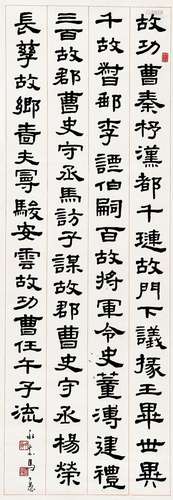 故功曹秦杼漢都千璉故門下議掾王畢世異
千故督郵李諲伯嗣百故將軍令史董溥建禮
三百故郡曹史守丞馬訪子謀故郡曹史守丞楊榮
長孳故鄉嗇夫曼駿安雲故功曹任午子流